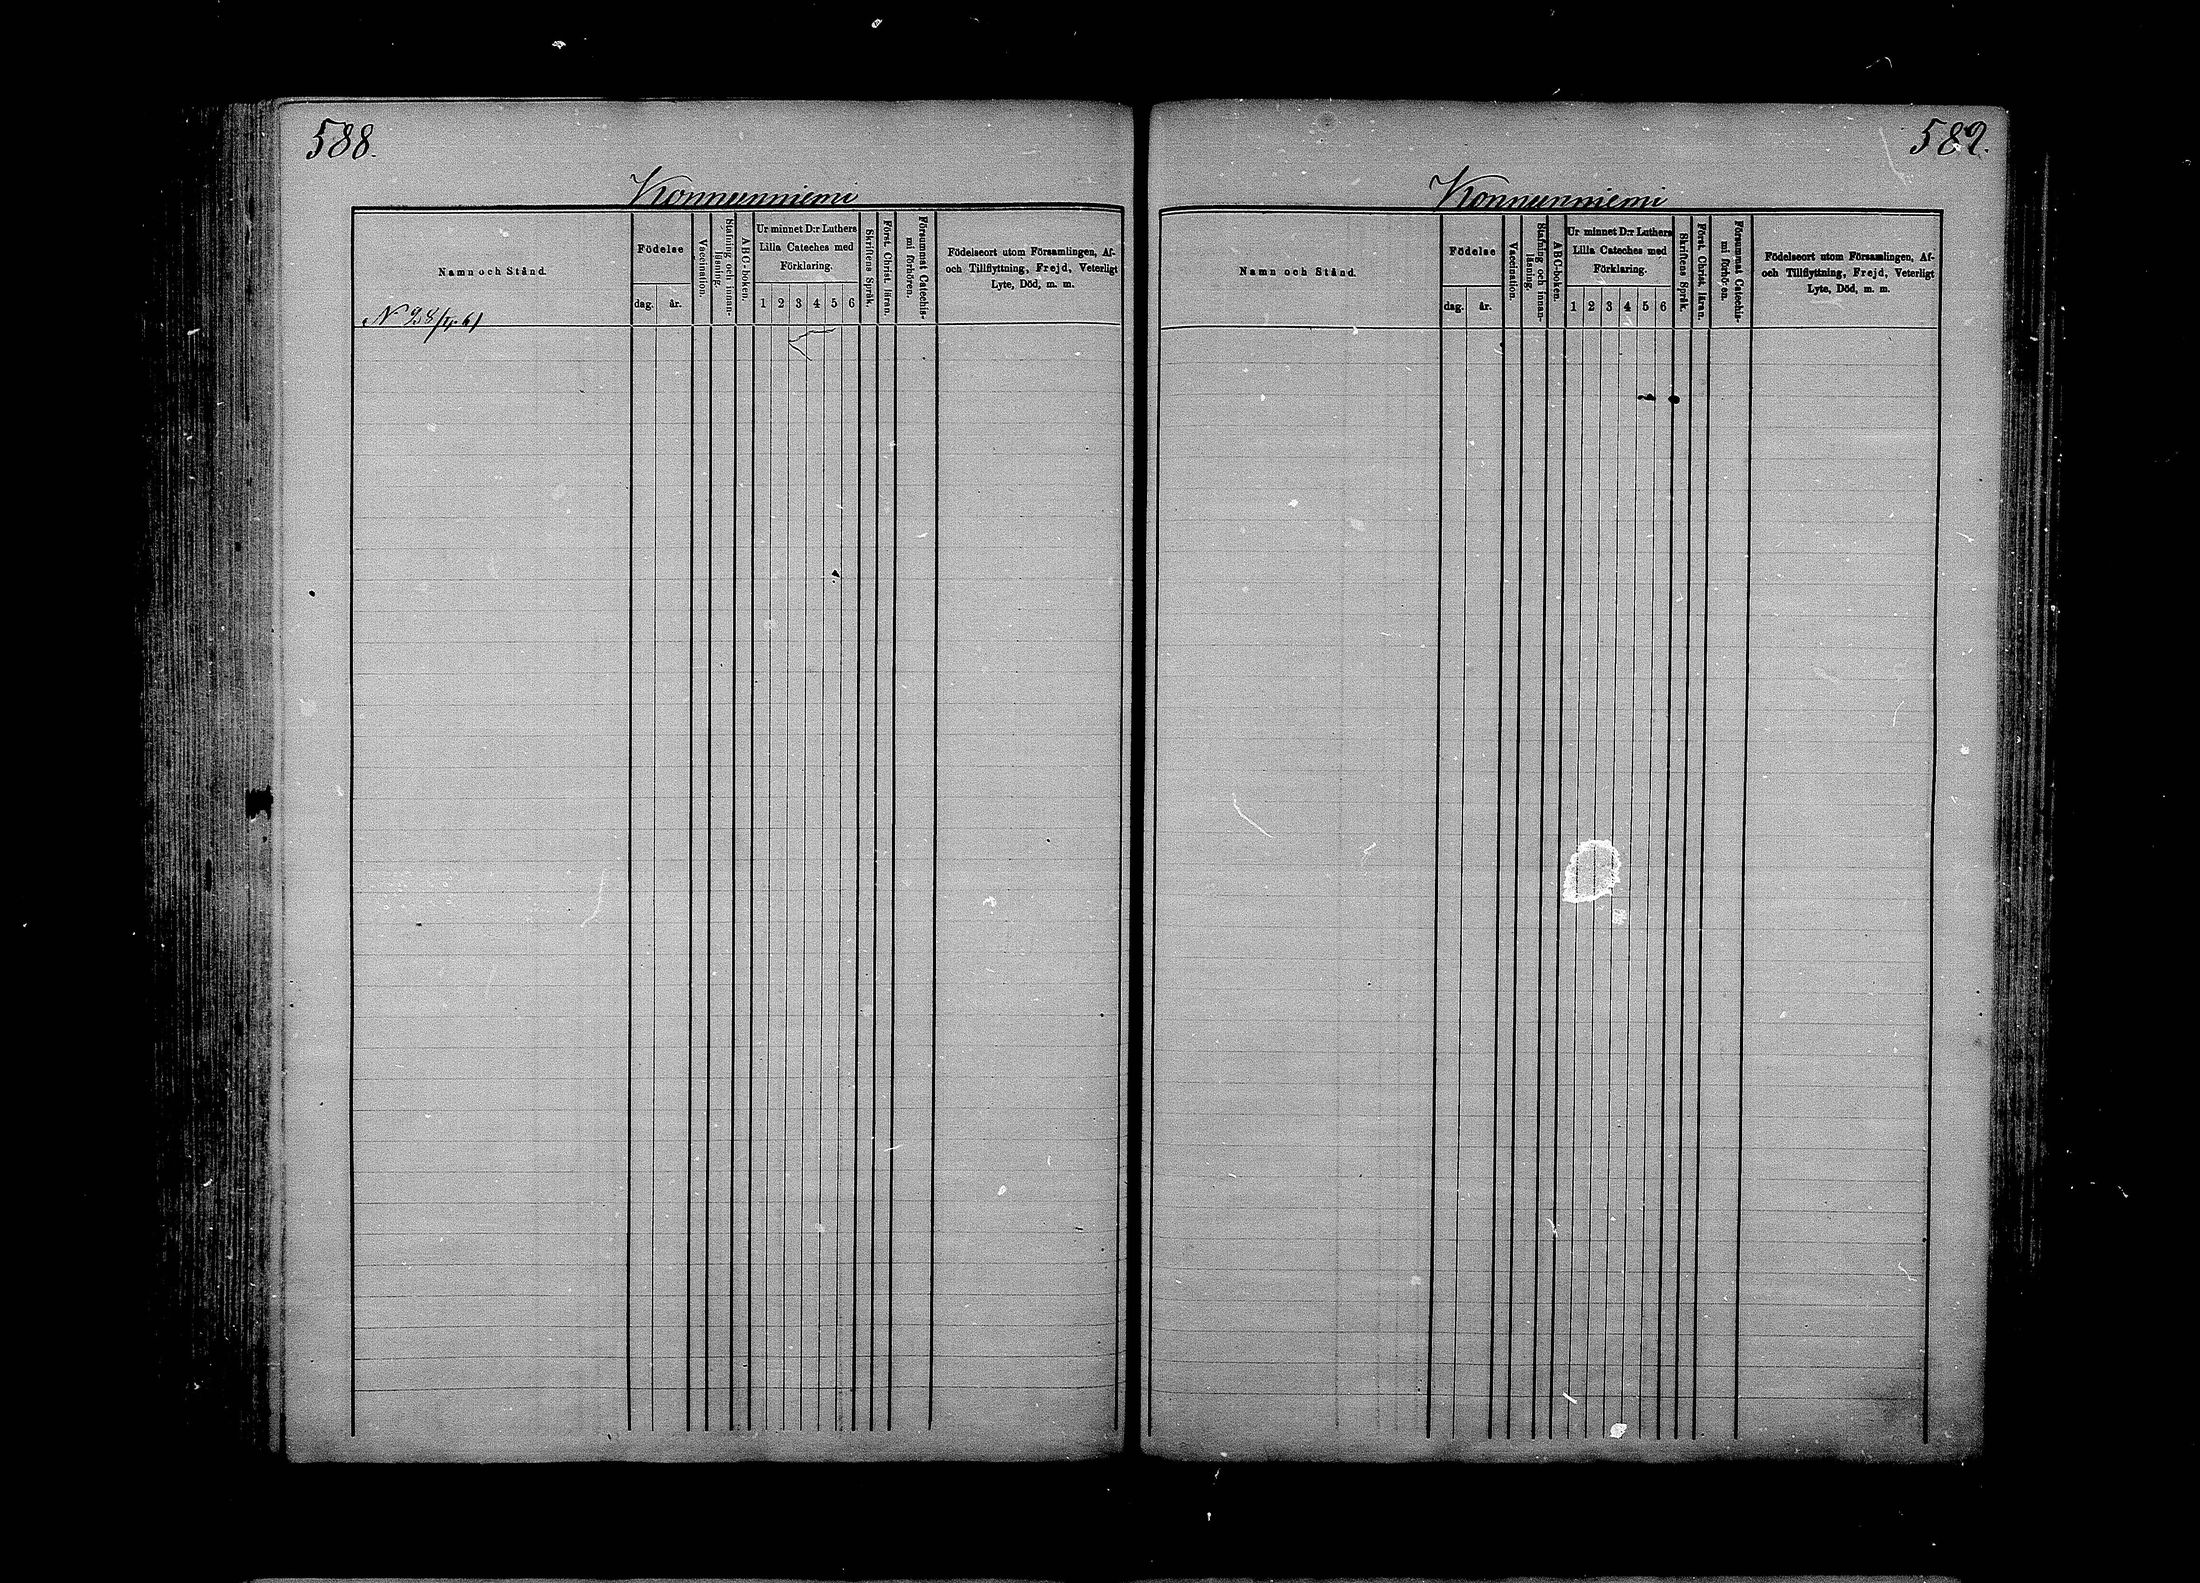 588.
Konnunniemi
Namn och Stånd.
Födelse
dag.
år.
Vaccination.
Stafning och innan-
läsning.
ABC-boken.
Ur minnet D:r Luthers
Lilla Cateches med
Förklaring.
1 2 3 4 5 6
Skriftens Språk.
Först. Christ. läran.
Försummat Catechis-
mi förhören.
Födelseort utom Församlingen, Af-
och Tillflyttning, Frejd, Veterligt
Lyte, Död, m. m.
589.
Konnunniemi
Namn och Stånd.
Födelse
dag.
år.
Vaccination.
Stafning och innan-
läsning.
ABC-boken.
Ur minnet D:r Luthers
Lilla Cateches med
Förklaring.
1 2 3 4 5 6
Skriftens Språk.
Först. Christ. läran.
Försummat Catechis-
mi förhören.
Födelseort utom Församlingen, Af-
och Tillflyttning, Frejd, Veterligt
Lyte, Död, m. m.